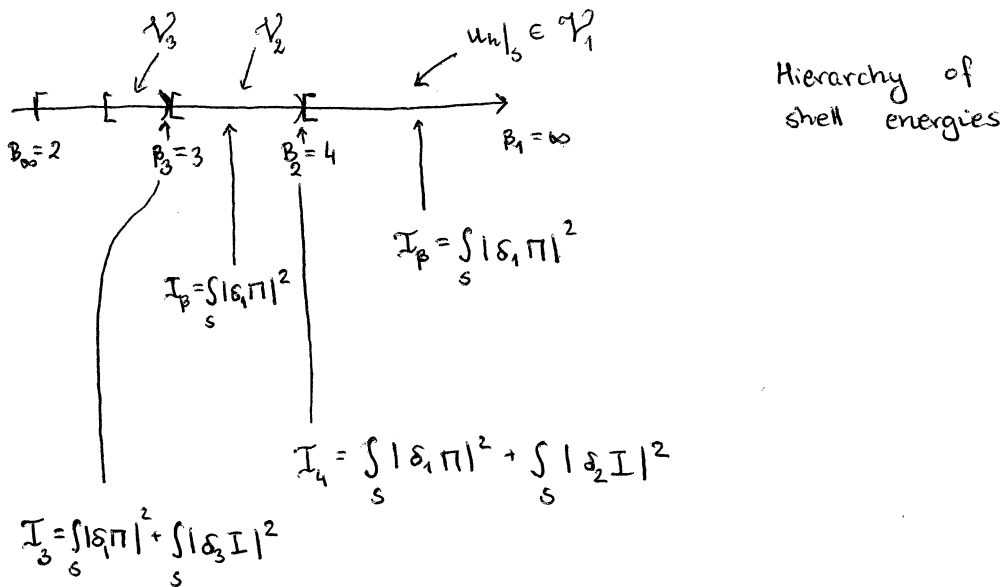 𝒱₃ 𝒱₂ uₕ|ₛ ∈ 𝒱₁
Hierarchy of
shell energies
β_∞=2 β₃=3 β₂=4 β₁=∞
I_β = ∫_S |δ₁Π|²
I_β = ∫_S |δ₁Π|²
I₄ = ∫_S |δ₁Π|² + ∫_S |δ₂I|²
I₃ = ∫_S |δ₁Π|² + ∫_S |δ₃I|²